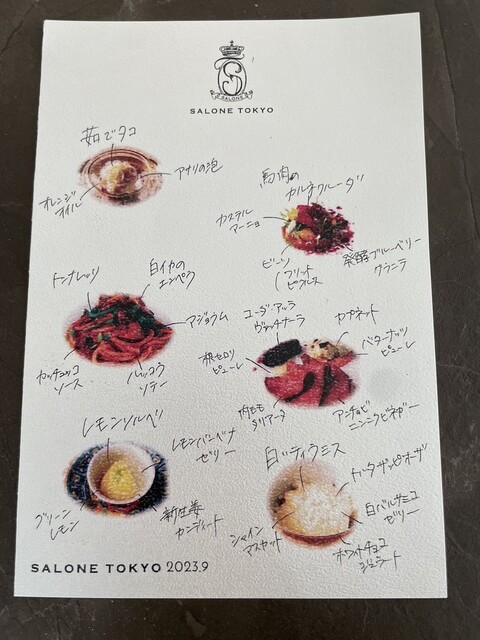 SALONE
SALONE TOKYO
茹でタコ
アサリの泡
オレンジ
オイル
馬肉の
カルネクルーダ
カステル
マーニョ
ビーツ
フリット
ピクルス
発酵ブルーベリー
グラニテ
トンナレッリ
白イカの
エンペラ
マジョラム
カッチュッコ
ソース
ルッコラ
ソテー
コーダ・アッラ
ヴァッチナーラ
カプネット
バターナッツ
ピューレ
根セロリ
ピューレ
内モモ
タリアータ
アンチョビ
ニンニクビネガー
レモンソルベ
レモンバーベナ
ゼリー
グリーン
レモン
新生姜
カンディート
白いティラミス
トルタザッピオーザ
白バルサミコ
ゼリー
シャイン
マスカット
ホワイトチョコ
ジェラート
SALONE TOKYO 2023.9